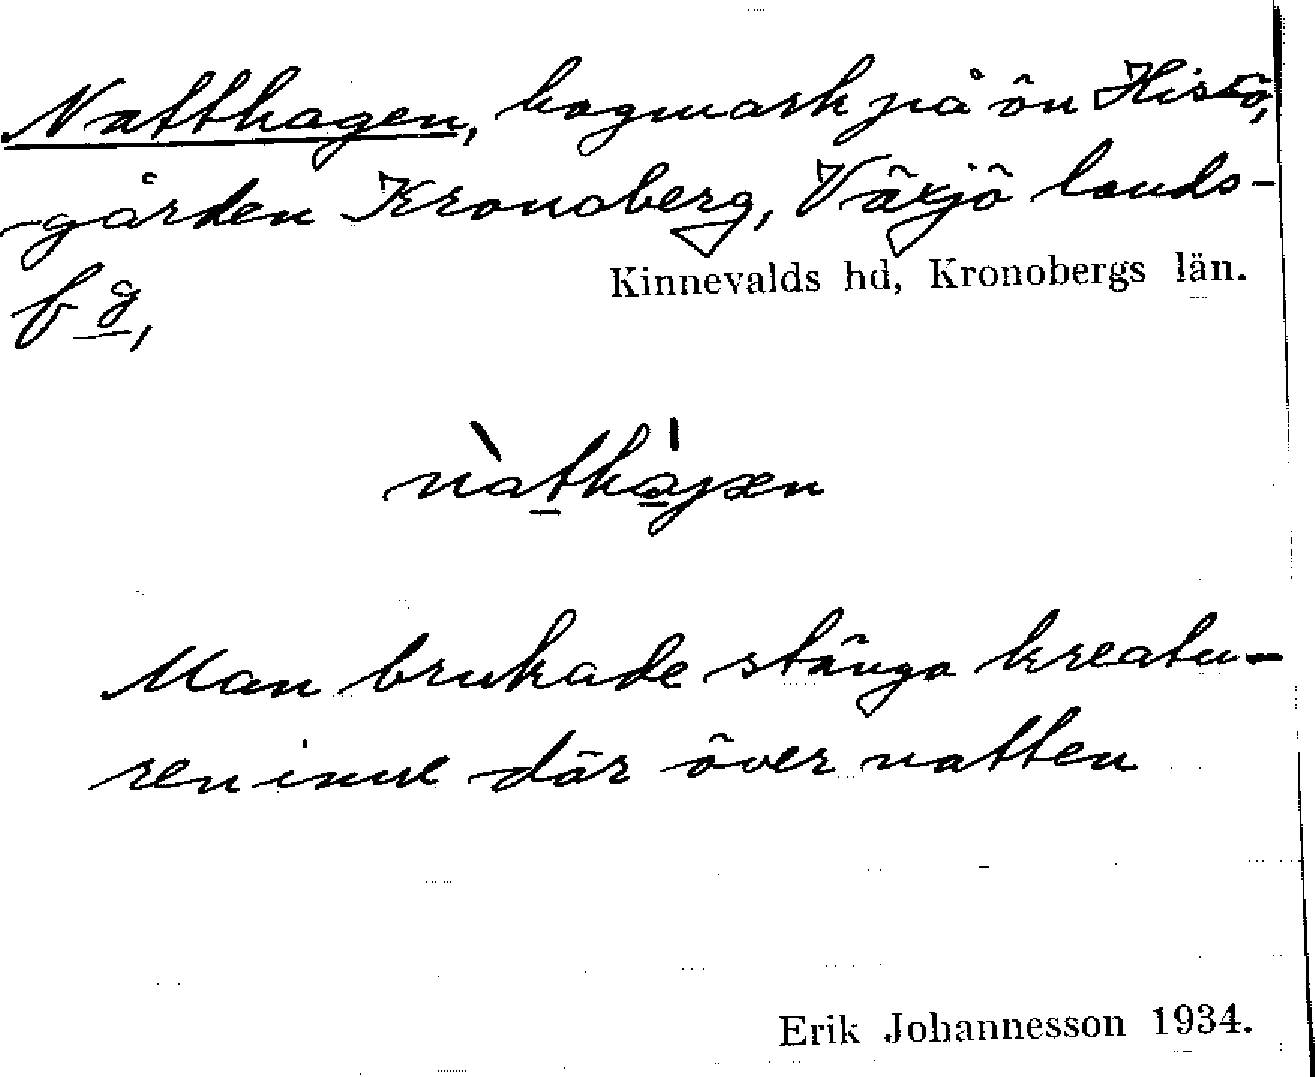 Natthagen, hagmark på ön Histö,
gården Kronoberg, Växjö lands-
fg,
Kinnevalds hd, Kronobergs län.
nàthagen
Man brukade stänga kreatu-
ren inne där över natten
Erik Johannesson 1934.